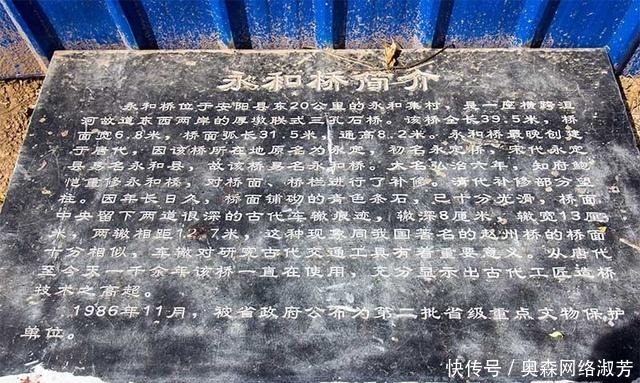 永和桥简介
永和桥位于安阳县东20公里的永和集村，是一座横跨洹
河故道东西两岸的厚墩联式三孔石桥。该桥全长39.5米，桥
面宽6.8米，桥面弧长31.5米，通高8.2米。永和桥最晚创建
于唐代，因该桥所在地原名为永定，初名永定桥，宋代永定
县易名永和县，故该桥易名永和桥。大名弘治六年，知府鲍
恺重修永和桥，对桥面、桥栏进行了补修。清代补修部分望
柱。因年长日久，桥面铺砌的青色条石，已十分光滑，桥面
中央留下两道很深的古代车辙痕迹，辙深8厘米，辙宽13厘
米，两辙相距12.7米，这种现象同我国著名的赵州桥的桥面
十分相似，车辙对研究古代交通工具有着重要意义。从唐代
至今天一千余年该桥一直在使用，充分显示出古代工匠造桥
技术之高超。
1986年11月，被省政府公布为第二批省级重点文物保护
单位。
快传号／奥森网络淑芳